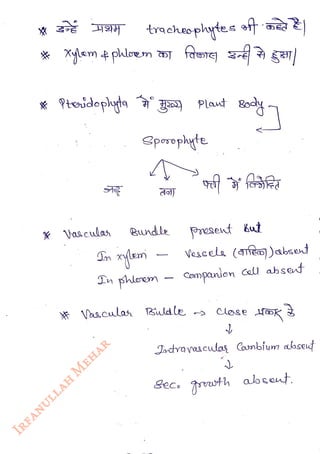 * इन्हें प्रथम tracheophytes भी कहते हैं।
* Xylem & phloem का विकास इन्हीं से हुआ।
* Pteridophyta में मुख्य Plant Body
Sporophyte
जड़ तना पत्ती में विभेदित
* Vascular Bundle present but
In xylem – Vessels (वाहिका) absent
In phloem – companion cell absent
* Vascular Buldle → close प्रकार के
↓
Intravascular Cambium absent
↓
Sec. growth absent.
IRFANULLAH MEHAR